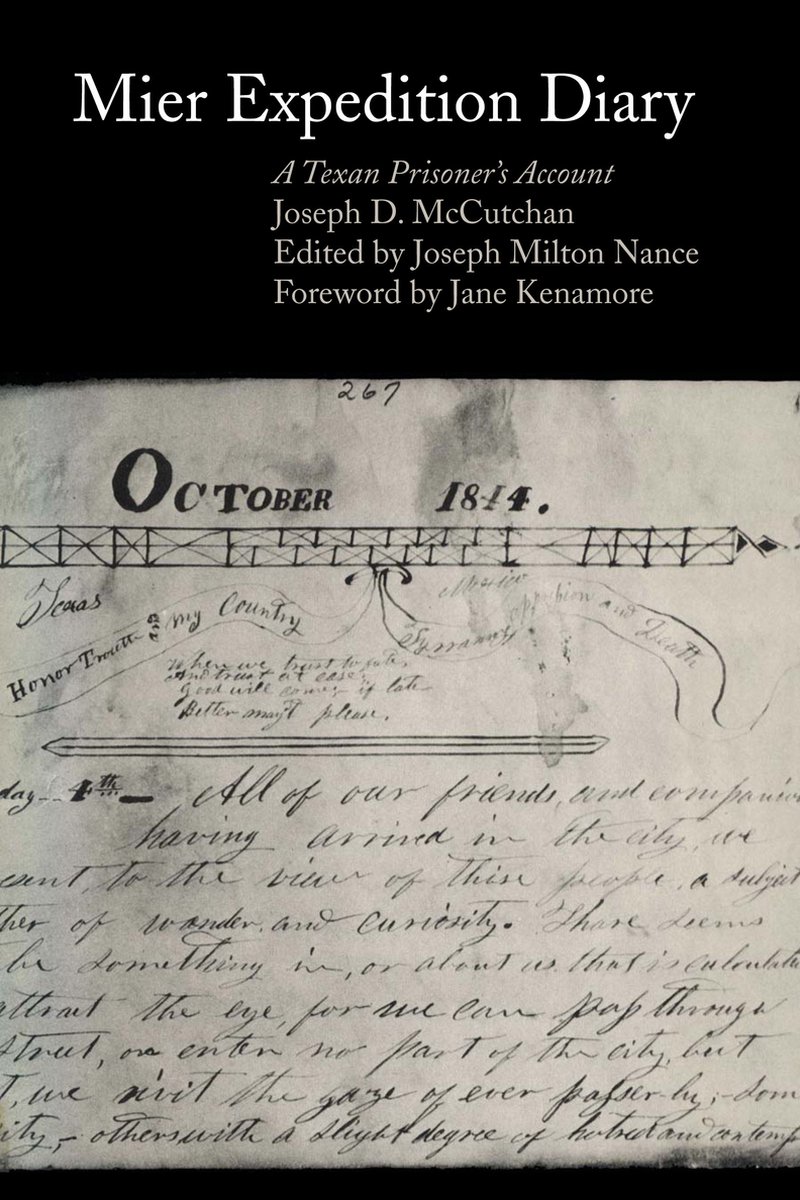 Mier Expedition Diary
A Texan Prisoner's Account
Joseph D. McCutchan
Edited by Joseph Milton Nance
Foreword by Jane Kenamore
267
OCTOBER 1844.
Texas
Mexico
Honor Trouth and my Country
Tyranny
and Death
When we trust to fate,
And trust at ease;
Good will come, if late
Better may't please.
day - 4th — All of our friends, and companions
having arrived in the city, we
esent, to the view of these people, a subject
ther of wonder, and curiosity. Thare seems
be something in, or about us that is calculate
attract the eye, for we can pass through
street, or enter no part of the city, but
t, we rivit the gaze of ever passer-by; - som
ity, - others with a slight degree of hatred and contemp